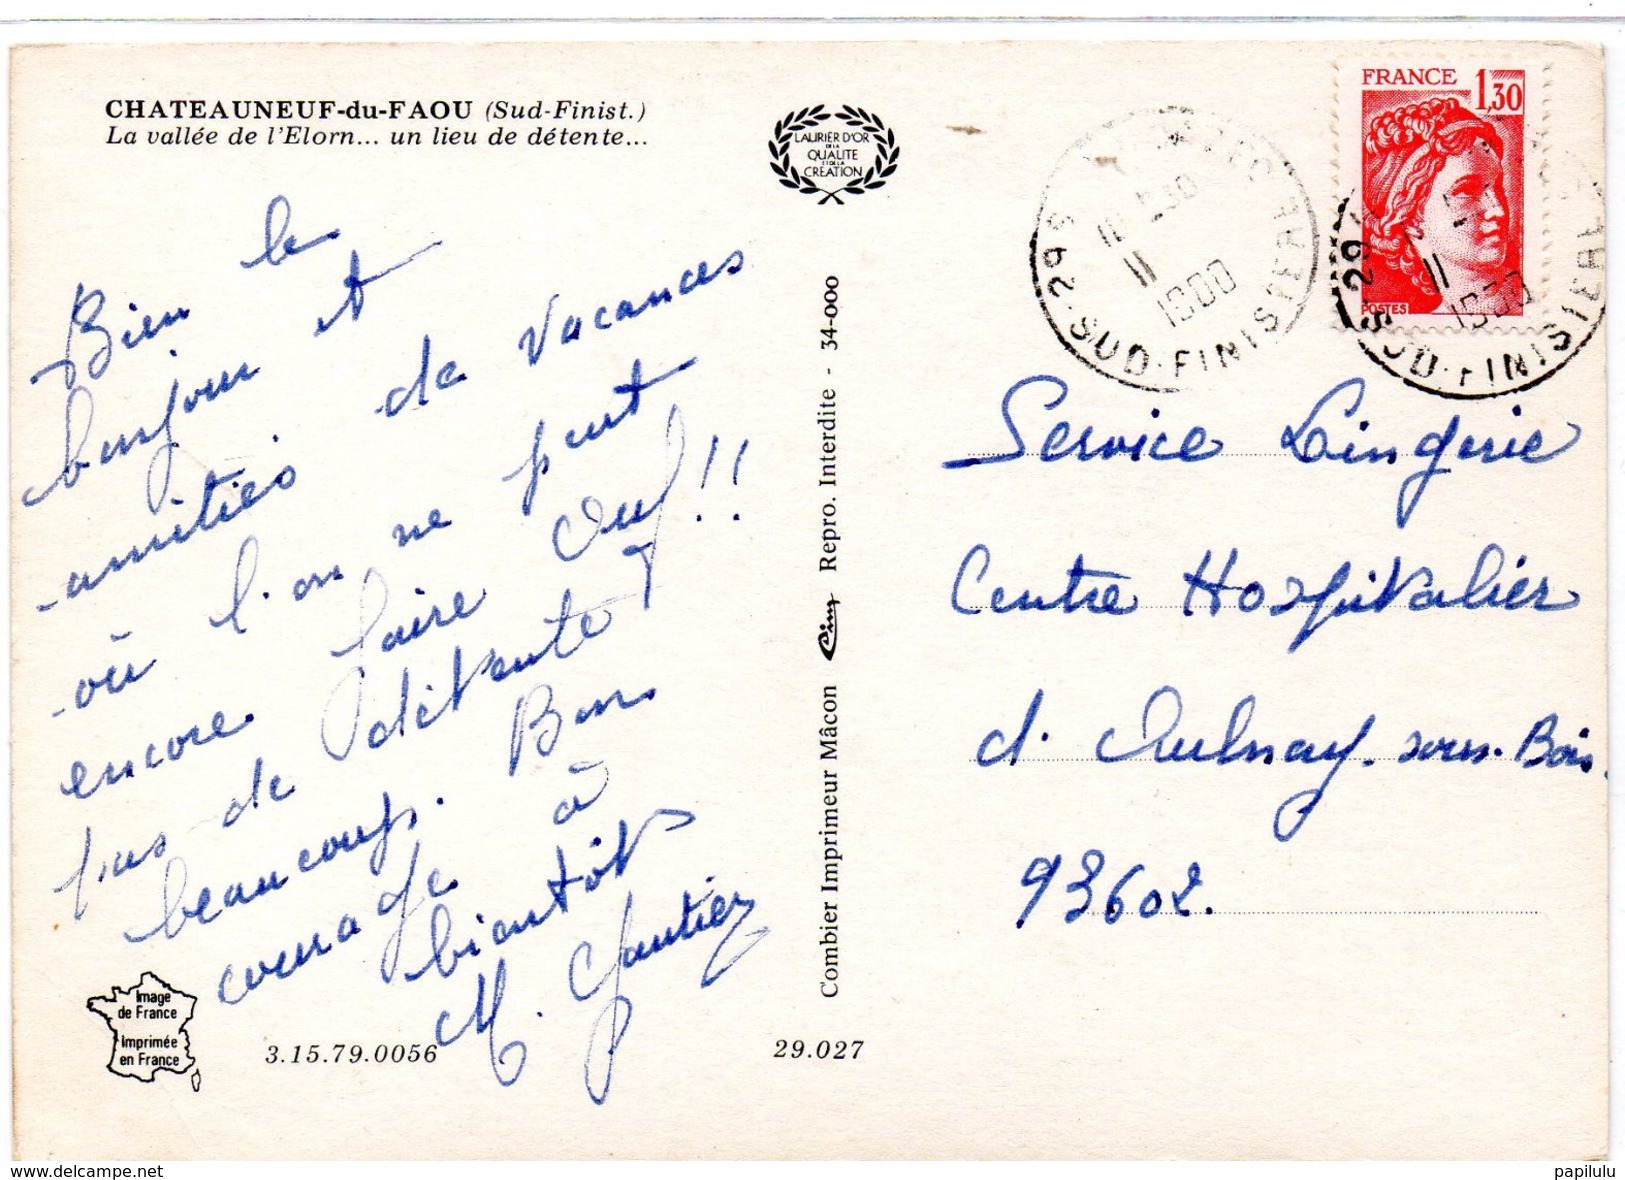 CHATEAUNEUF-du-FAOU (Sud-Finist.)
La vallée de l'Elorn... un lieu de détente...
LAURIER D'OR
DE LA
QUALITE
ET DE LA
CREATION
FRANCE 1,30
POSTES
29 S
SUD-FINISTERE
29
SUD-FINISTERE
Bien le
bonjour et
amitiés de vacances
où l'on ne peut
encore faire ouf!!
pas de détente
beaucoup. Bon
courage à
bientôt
M. Gautier
Service Lingerie
Centre Hospitalier
d'Aulnay-sous-Bois.
93602.
Combier Imprimeur Mâcon Cim Repro. Interdite - 34-000
Image
de France
Imprimée
en France
3.15.79.0056
29.027
www.delcampe.net
papilulu